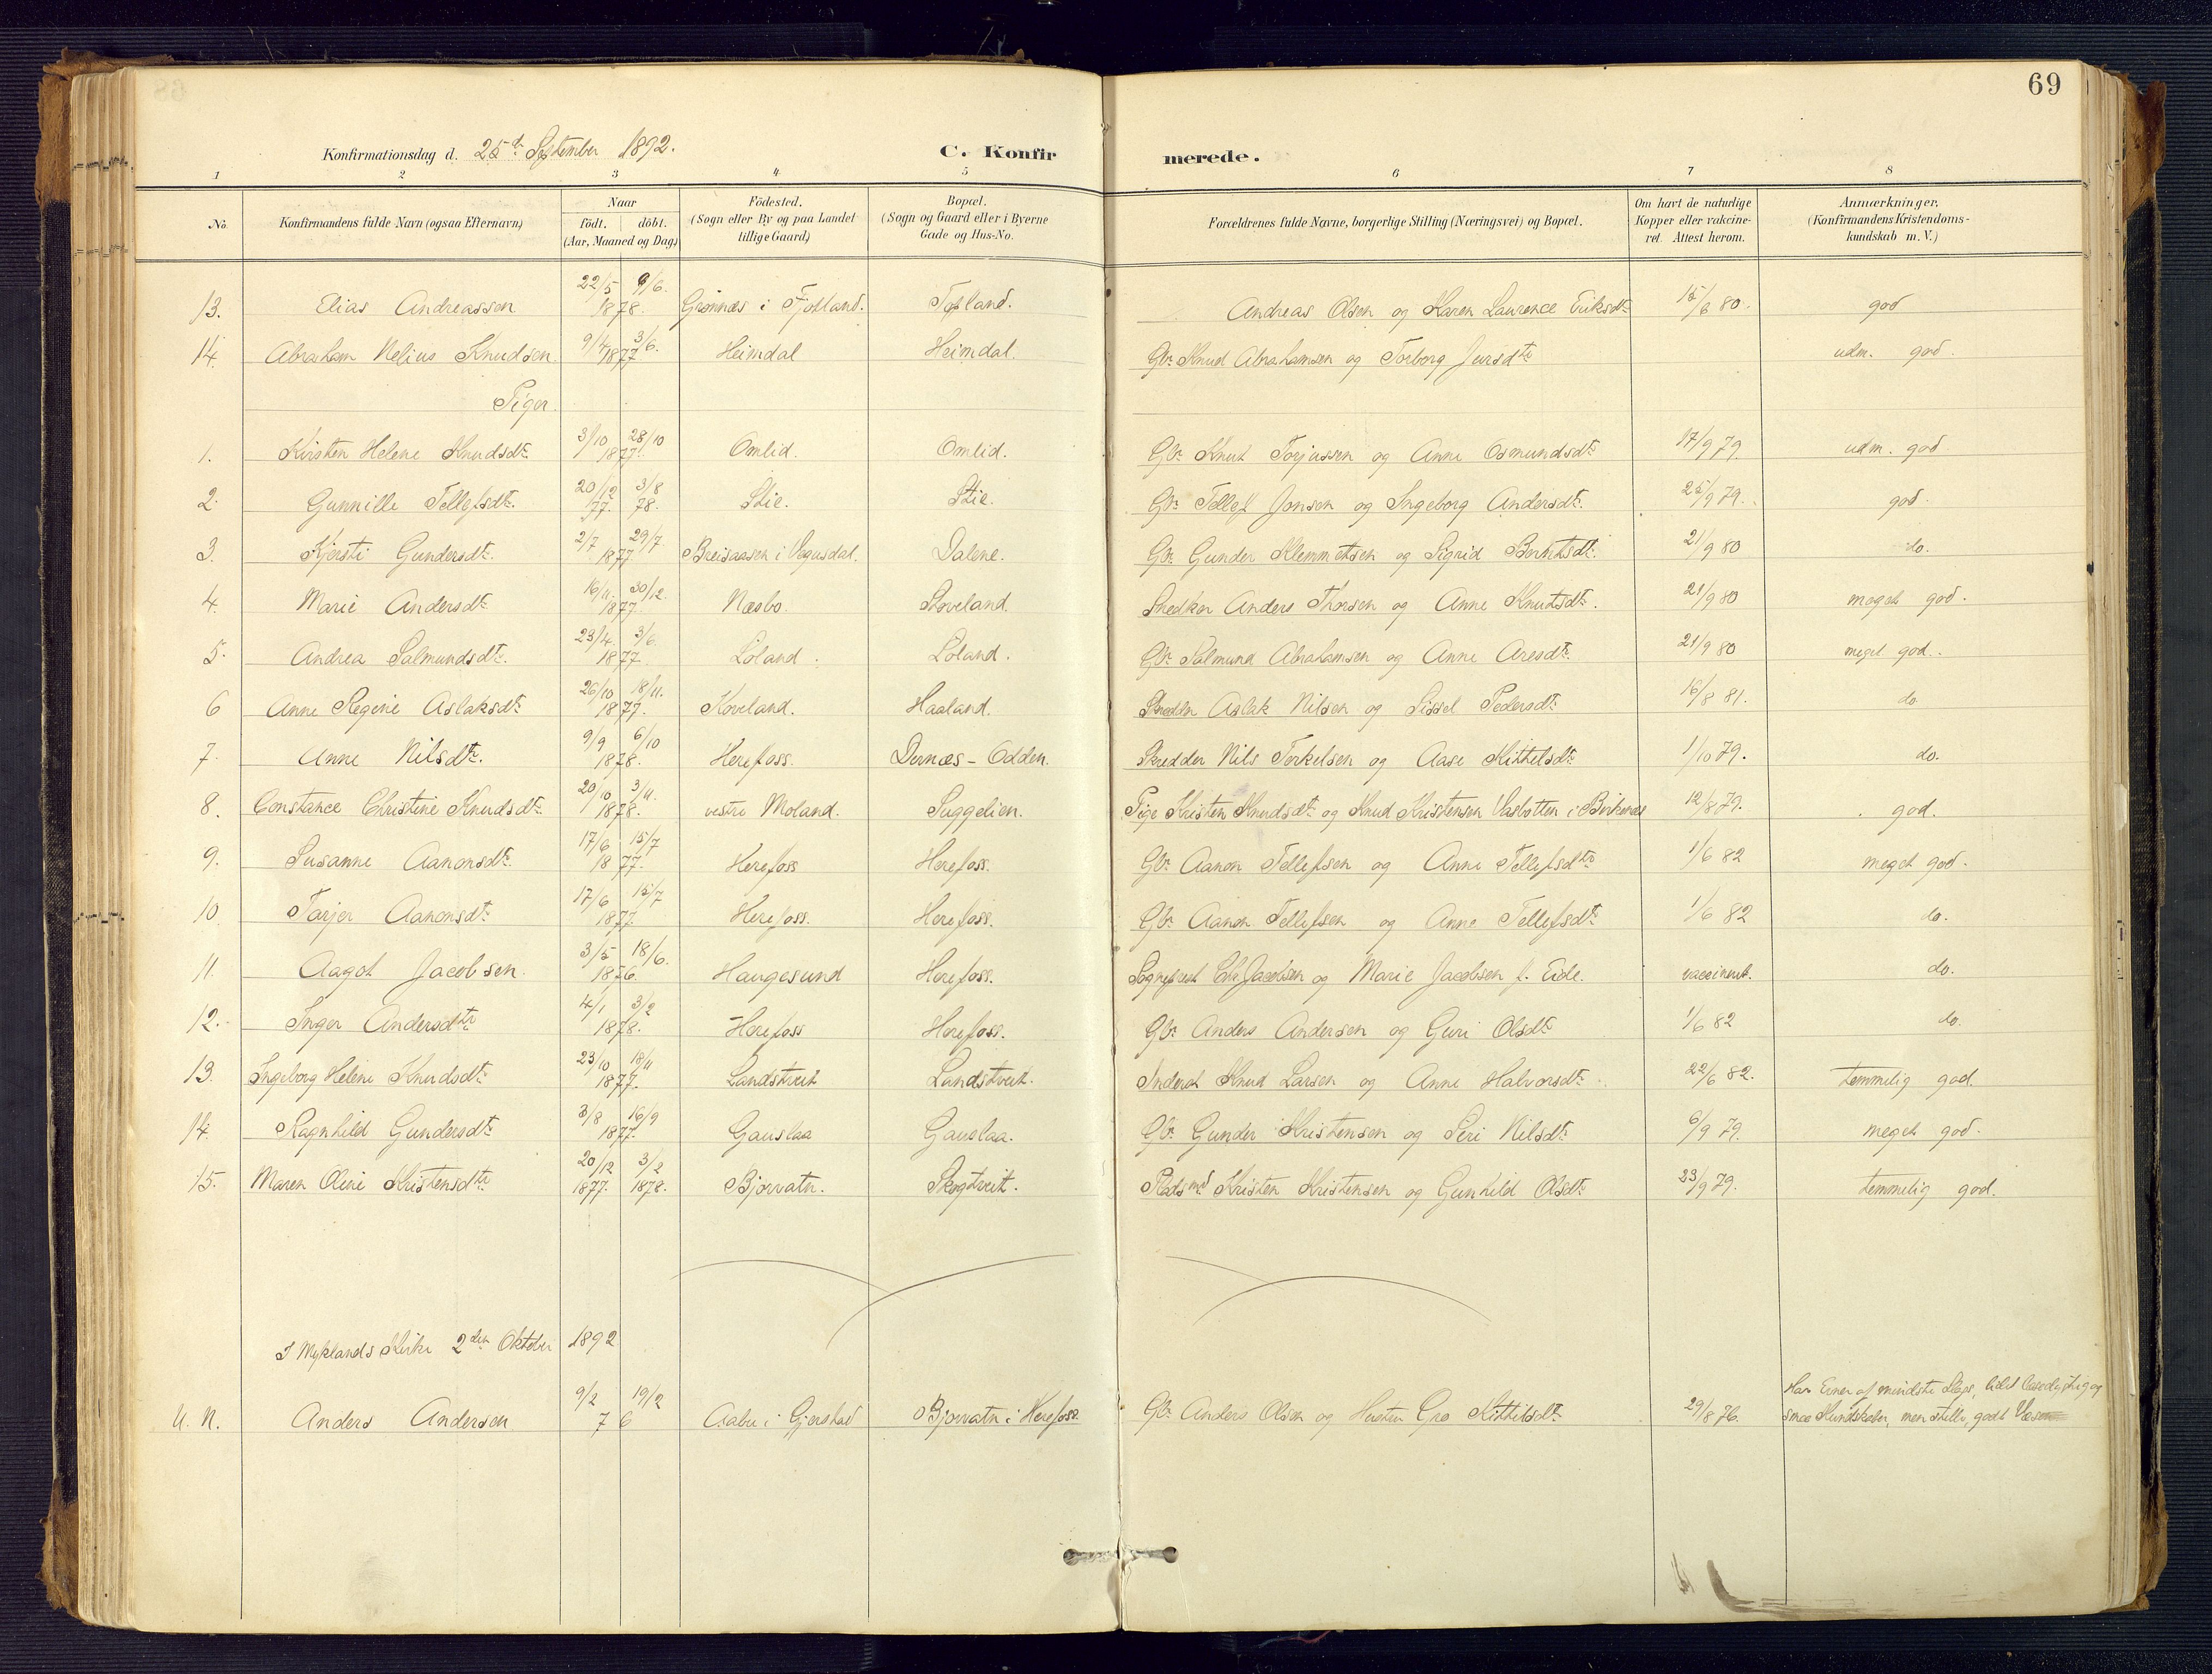 69
Konfirmationsdag d. 25de September 1892. C. Konfirmerede.
1 2 3 4 5 6 7 8
No. Konfirmandens fulde Navn (ogsaa Efternavn) Naar födt. döbt. (Aar, Maaned og Dag) Födested. (Sogn eller By og paa Landet tillige Gaard) Bopæl. (Sogn og Gaard eller i Byerne Gade og Hus-No. Forældrenes fulde Navne, borgerlige Stilling (Næringsvei) og Bopæl. Om havt de naturlige Kopper eller vakcineret. Attest herom. Anmærkninger. (Konfirmandens Kristendomskundskab m. V.)
13. Elias Andreassen 22/5 9/6. 1878. Grønnæs i Topland. Andreas Olsen og Karen Laurence Eriksdtr 15/6 80. god
14. Abraham Nelius Knudsen. 9/4 3/6. 1877 Heimdal Heimdal. Gbr Knud Abrahamsen og Torborg Jursdtr udm. god.
Piger.
1. Kirsten Helene Knudsdtr. 3/10 28/10 1877. Omlid. Omlid. Gbr Knut Torjussen og Anne Osmundsdtr 17/9 79. udm. god.
2. Gunnille Tellefsdtr. 20/12 77. 3/8 78. Stie. Stie. Gbr Tellef Jonsen og Ingeborg Andersdtr. 25/9 79. god.
3. Kjersti Gundersdtr. 2/7 29/7. 1877. Breisaasen i Vegusdal. Dalene. Gbr. Gunder Klemmetsen og Sigrid Berntsdtr. 21/9 80 do.
4. Marie Andersdtr. 16/11. 30/12. 1877. Næsbo. Loveland. Snedker Anders Thorsen og Anne Knutsdtr. 21/9 80 meget god.
5. Andrea Salmundsdtr. 23/4. 3/6 1877. Loland. Loland. Gbr Salmund Abrahamsen og Anne Aresdtr. 21/9 80 meget god.
6 Anne Regine Aslaksdtr. 26/10 18/11. 1877. Koveland. Haaland. Aslak Nilsen og Sissel Pedersdtr. 16/8 81. do.
7. Anne Nilsdtr. 9/9 6/10 1878. Herefoss. Dernæs - Odden. Skredder Nils Terkelsen og Aase Kittelsdtr. 1/10 79. do.
8. Constance Christine Knudsdtr. 20/10 3/11. 1878. vestre Moland. Suggelien. Pige Kristen Knudsdtr og Knud Kristensen Vasbotten i Birkenes 12/8 79. god.
9. Susanne Aanonsdtr. 17/6 15/7 1877. Herefoss Herefoss. Gbr Aanon Tellefsen og Anne Tellefsdtr 1/6 82 meget god.
10. Tarjer Aanonsdtr. 17/6 15/7 1877. Herefoss. Herefoss. Gbr Aanon Tellefsen og Anne Tellefsdtr. 1/6 82 do.
11. Aagot Jacobsen. 3/5 18/6. 1876. Haugesund Herefoss. Sognepræst Chr Jacobsen og Marie Jacobsen f. Eide. vaccineret. do.
12. Inger Andersdtr 4/1 3/2 1878. Herefoss Herefoss. Gbr Anders Andersen og Guri Olsdtr 1/6 82 do.
13. Ingeborg Helene Knudsdtr. 23/10 18/11 1877. Landstveit Landstveit. Inderst Knud Larsen og Anne Halvorsdtr. 22/6 82. temmelig god.
14. Ragnhild Gundersdtr. 3/8 16/9 1877. Gauslaa Gauslaa. Gbr Gunder Kristensen og Seri Nilsdtr. 6/9 79. meget god.
15. Maren Oline Kristensdtr 20/12 1877. 3/2 1878. Bjorvatn. Skogtveit. Pladsmd Kristen Kristensen og Gunhild Olsdtr. 23/9 79. temmelig god.
I Myklands Kirke 2den Oktober 1892
U. N. Anders Andersen 9/2 19/2 76 Aabu i Gjerstad Bjorvatn i Herefoss Gbr Anders Olsen og Hustru Gro Kittilsdtr. 29/8 76. Har Evner af mindste Slags, lidt læselystig og smaa Kundskaber, men stille, godt Væsen